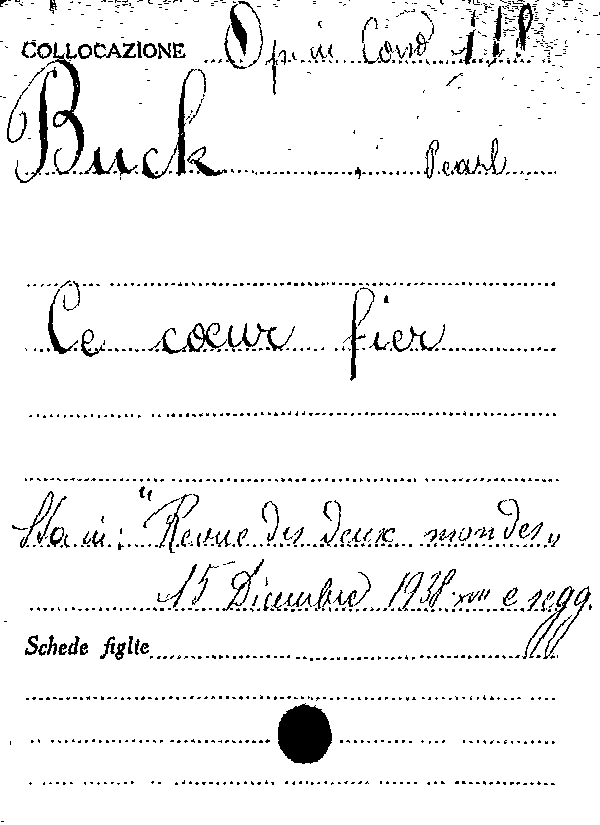 COLLOCAZIONE Op. in Cons 118
Buck, Pearl
Ce cœur fier
Sta in: "Revue des Deux mondes„
15 Dicembre 1938 XVII e segg.
Schede figlie